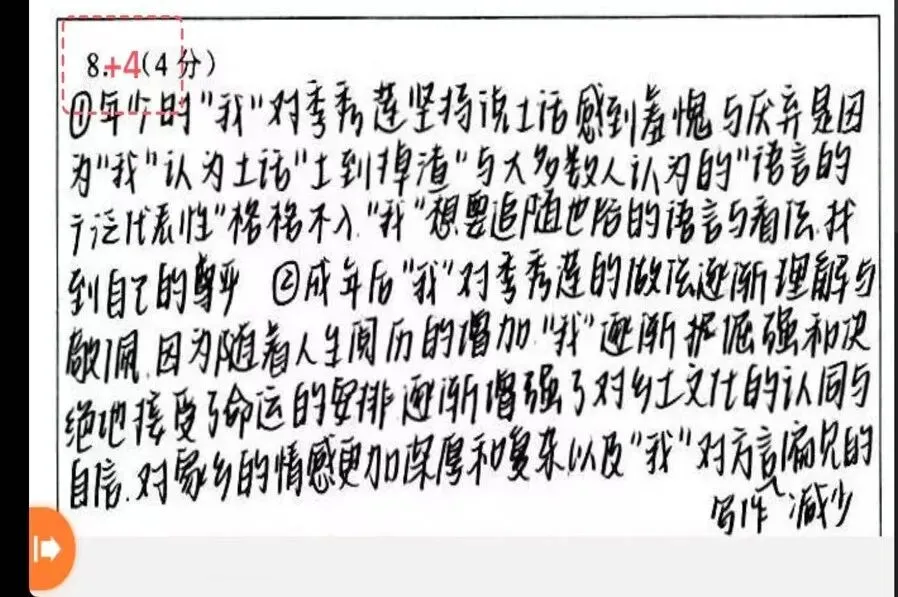 8.+4(4分)
①年少的“我”对李秀莲坚持说土话感到羞愧与厌弃是因
为“我”认为土话“土到掉渣”与大多数人认为的“语言的
广泛代表性”格格不入.“我”想要追随他的语言与看法.找
到自己的尊严 ②成年后“我”对李秀莲的做法逐渐理解与
敬佩.因为随着人生阅历的增加.“我”逐渐 倔强和决
绝地接受了命运的安排 逐渐增强了对乡土文化的认同与
自信.对家乡的情感更加深厚和复杂以及“我”对方言偏见的
写作 减少